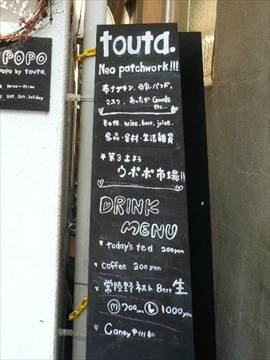 POPO
Popo by touta.
touta.
Neo patchwork!!!
布ナプキン、母乳パッド、
マスク、あったか Goods
etc...
cafe, wine, bar, juice,
食品・食材・生活雑貨
第3土よう
ウポポ市場!!
DRINK
MENU
today's tea 200yen
coffee 300yen
常陸野ネスト Beer 生
M 700 L 1000yen
Candy